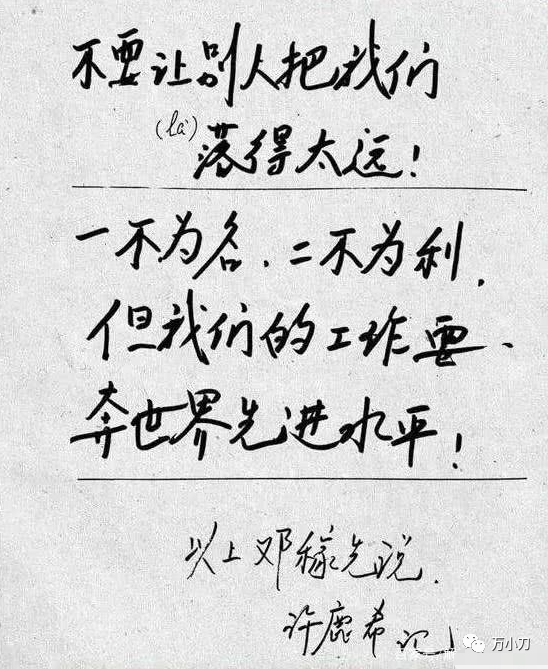 不要让别人把我们
(là)
落得太远!
一不为名、二不为利,
但我们的工作要、
奔世界先进水平!
以上邓稼先说.
许鹿希记
万小刀